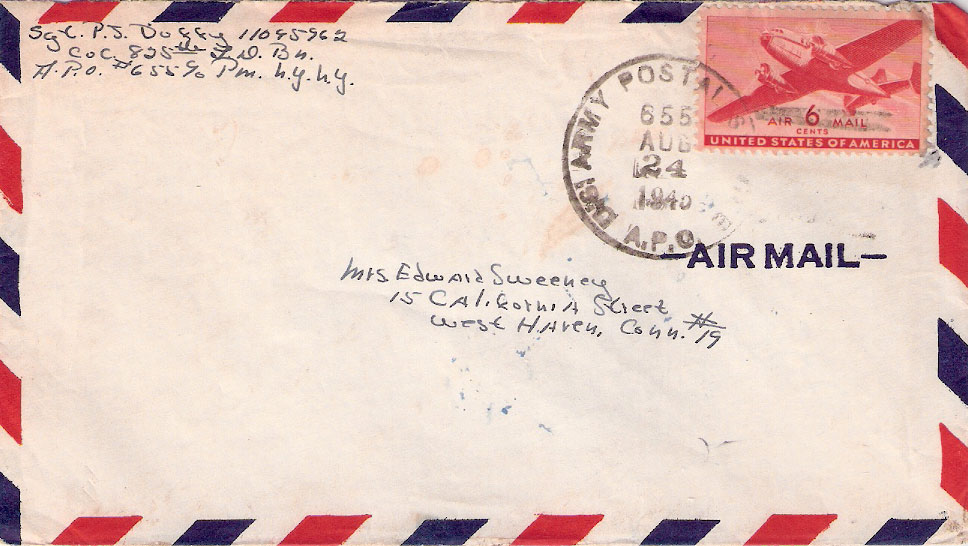 Sgt. P.J. Duffy 11095962
Co C. 825th T.D. Bn.
A.P.O. #655 c/o Pm. n.y. n.y.
U.S. ARMY POSTAL
655
AUG
24
1945
A.P.O.
AIR 6 MAIL
CENTS
UNITED STATES OF AMERICA
—AIR MAIL—
Mrs Edward Sweeney
15 California Street
West Haven, Conn. #19